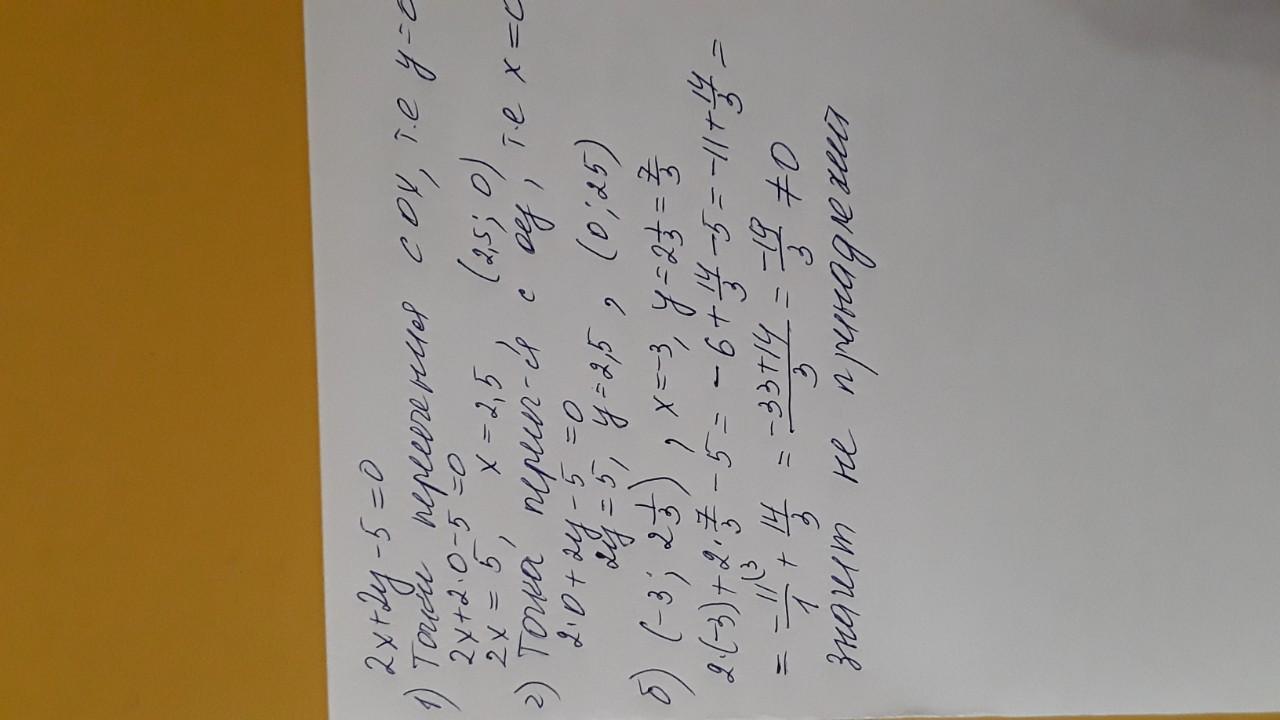 2x+2y-5=0
1) Точки пересечения с OX, т.е y=0
2x+2·0-5=0
2x=5, x=2,5 (2,5; 0)
2) Точка перес-ия с оу, т.е x=0
2·0+2y-5=0
2y=5, y=2,5, (0; 25)
б) (-3; 2 1/3), x=-3, y=2 1/3=7/3
2·(-3)+2·7/3-5=-6+14/3-5=-11+14/3=
=-11/1(3+14/3=(-33+14)/3=-19/3≠0
значит не принадлежит